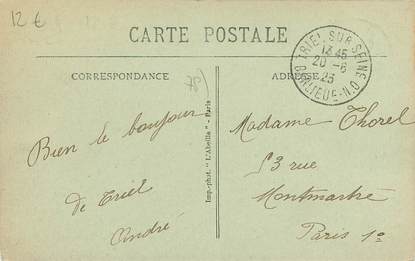 12 €
CARTE POSTALE
CORRESPONDANCE
ADRESSE
TRIEL SUR SEINE
13 45
20 - 6
23
Bien le bonjour
de Triel
André
Imp.-phot. "L'Abeille" - Paris
Madame Thorel
53 rue
Montmartre
Paris 1º